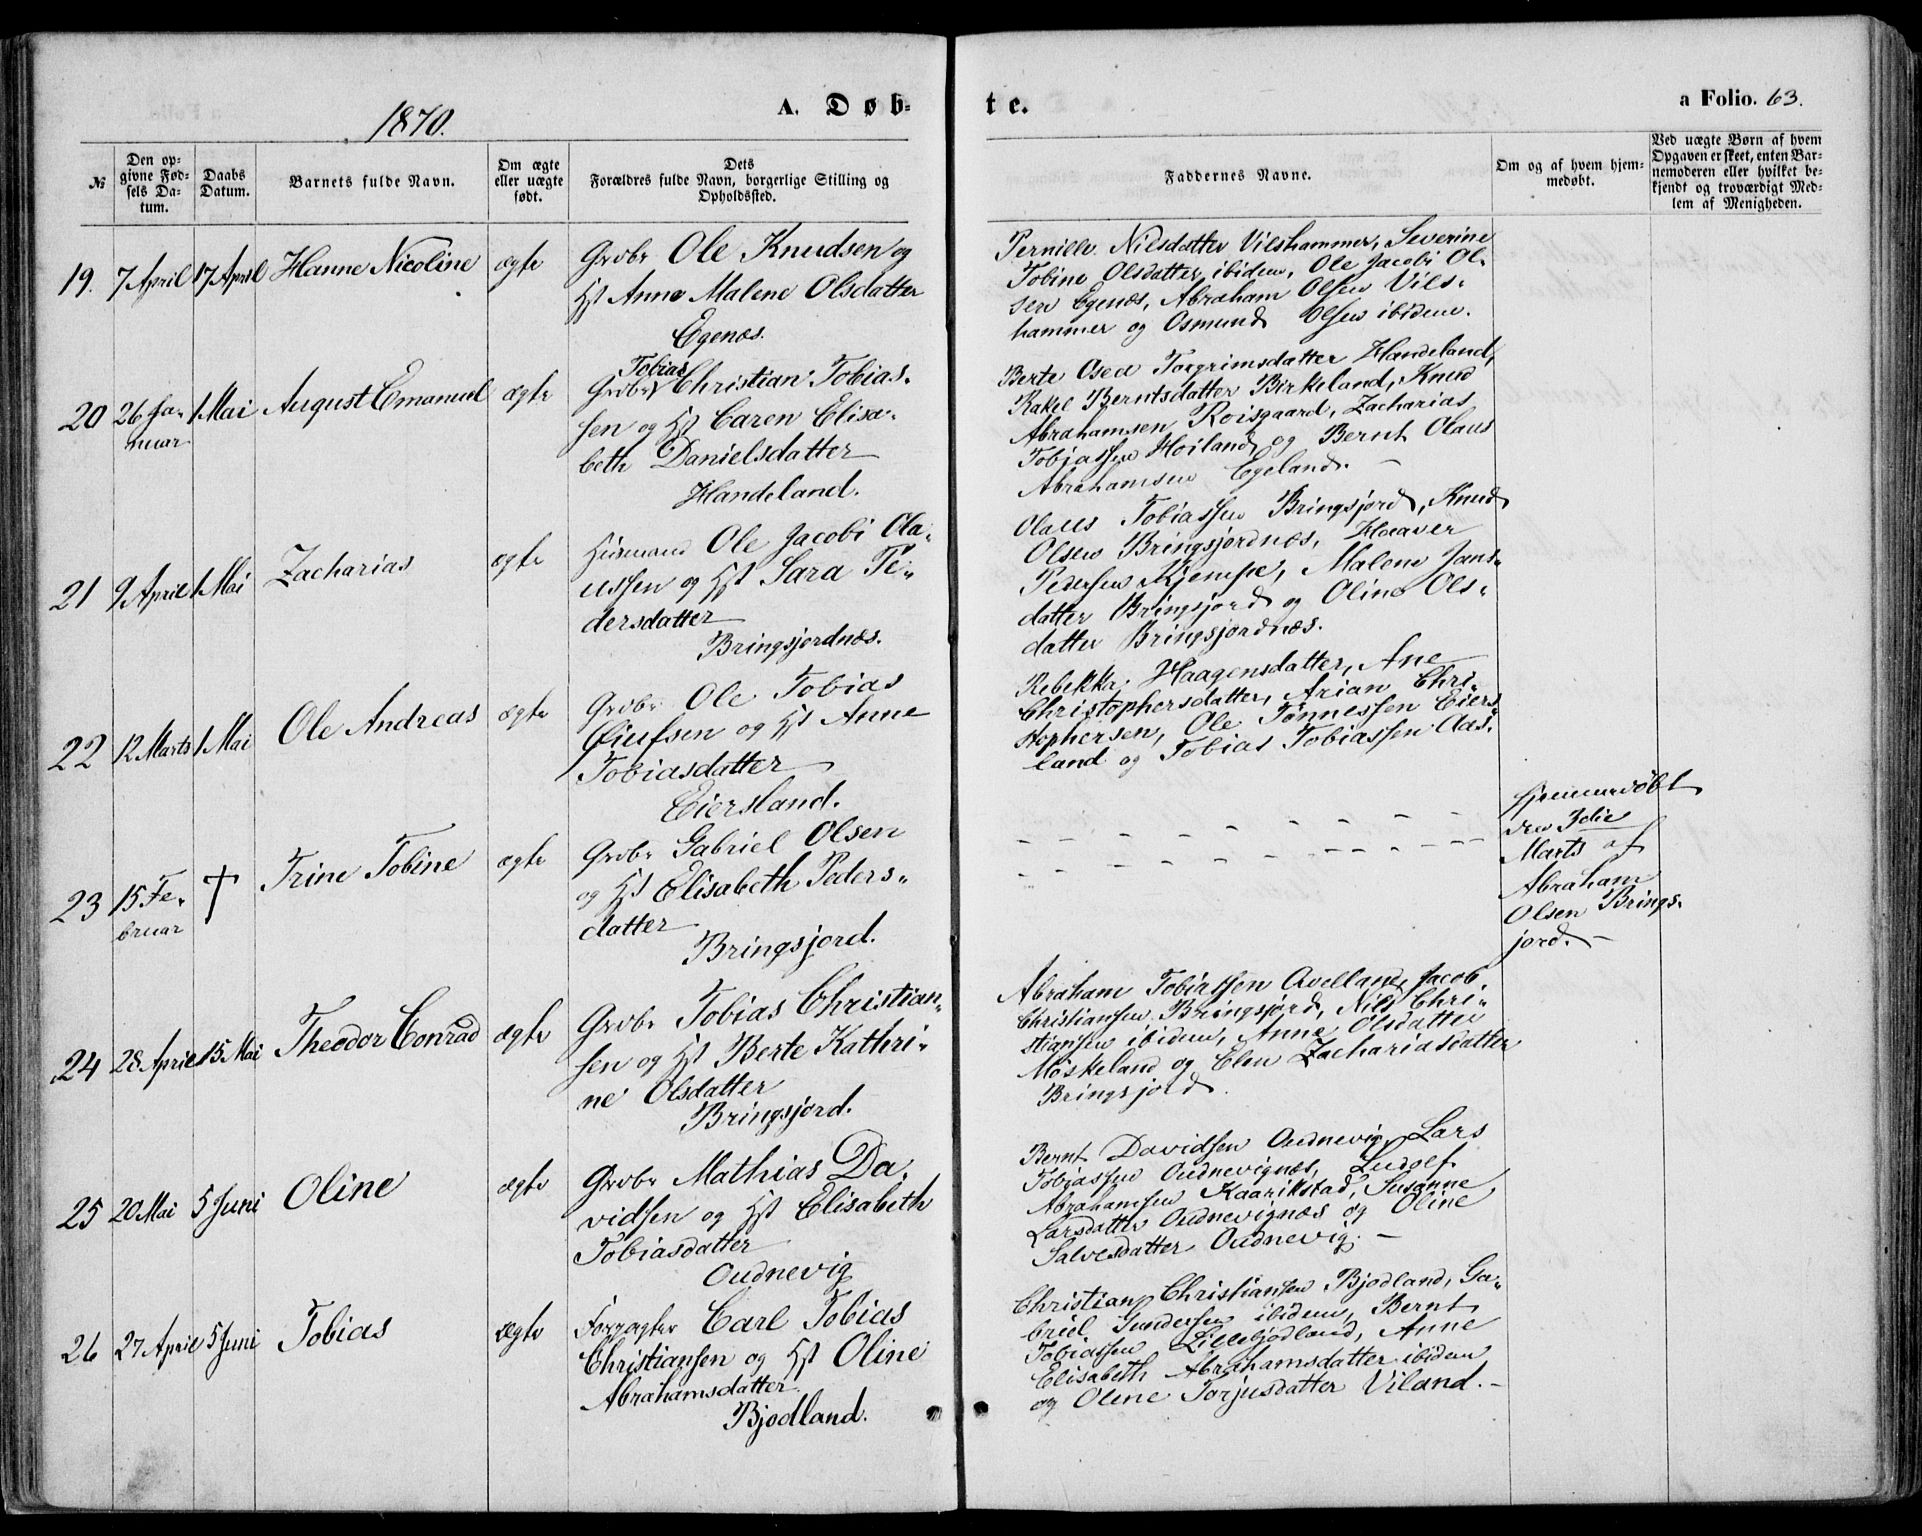 1870.
A. Døb-
te.
a Folio. 63.
№
Den op-
givne Fød-
sels Da-
tum.
Daabs
Datum.
Barnets fulde Navn.
Om ægte
eller uægte
født.
Dets
Forældres fulde Navn, borgerlige Stilling og
Opholdssted.
Faddernes Navne.
Om og af hvem hjem-
medøbt.
Ved uægte Børn af hvem
Opgaven er skeet, enten Bar-
nemoderen eller hvilket be-
kjendt og troværdigt Med-
lem af Menigheden.
19. 7 April 17 April Hanne Nicoline ægte
Grdbr Ole Knudsen og
Hst Anne Malene Olsdatter
Egenæs.
Pernille Nilsdatter Vilshammer, Severine
Tobine Olsdatter ibidem, Ole Jacobi Ol-
sen Egenæs, Abraham Olsen Vils-
hammer og Osmund Olsen ibidem.
20 26 Ja-
nuar
1 Mai August Emanuel ægte
Tobias
Grdbr Christian Tobias-
sen og Hst Caren Elisa-
beth Danielsdatter
Handeland.
Berte Osea Torgrimsdatter Handeland,
Rakel Berntsdatter Birkeland, Knud
Abrahamsen Roisgaard, Zacharias
Tobiassen Høiland og Bernt Olaus
Abrahamsen Egeland. -
21 9 April 1 Mai Zacharias ægte
Husmand Ole Jacobi Ola-
ussen og Hst Sara Pe-
dersdatter
Bringsjordnæs.
Olaus Tobiassen Bringsjord, Knud
Olsen Bringsjordnæs, Haaver
Pedersen Kjempe, Malene Jans-
datter Bringsjord og Oline Ols-
datter Bringsjordnæs.
22 12 Marts 1 Mai Ole Andreas ægte
Grdbr Ole Tobias
Eiufsen og Hst Anne
Tobiasdatter
Eiersland.
Rebekka Haagensdatter, Ane
Christophersdatter, Arian Chri-
stophersen, Ole Tønnessen Eiers-
land og Tobias Tobiassen Aas-
23 15 Fe-
bruar
† Trine Tobine ægte
Grdbr Gabriel Olsen
og Hst Elisabeth Peders-
datter
Bringsjord.
hjemmedøbt
den 7die
Marts af
Abraham
Olsen Brings-
jord. -
24 28 April 15 Mai Theodor Conrad ægte
Grdbr Tobias Christian-
sen og Hst Berte Kathri-
ne Olsdatter
Bringsjord.
Abraham Tobiassen Avelland, Jacob
Christiansen Bringsjord, Nils Chri-
stiansen ibidem, Anne Olsdatter
Møskeland og Elen Zachariasdatter
Bringsjord
25 20 Mai 5 Juni Oline ægte
Grdbr Mathias Da-
vidsen og Hst Elisabeth
Tobiasdatter
Oudnevig
Bernt Davidsen Oudnevig, Lars
Tobiassen Oudnevignæs, Ludolf
Abrahamsen Kaarikstad, Susanne
Larsdatter Oudnevignæs og Oline
Salvesdatter Oudnevig. -
26 27 April 5 Juni Tobias ægte
Forpagter Carl Tobias
Christiansen og Hst Oline
Abrahamsdatter
Bjodland.
Christian Christiansen Bjodland, Ga-
briel Gundersen ibidem, Bernt
Tobiassen Lillebjodland, Anne
Elisabeth Abrahamsdatter ibidem
og Olene Torjusdatter Viland. -